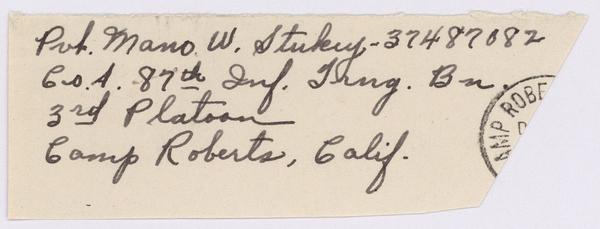 Pvt. Mano W. Stukey-37487082
Co. A. 87th Inf. Trng. Bn.
3rd Platoon
Camp Roberts, Calif.
AMP ROBE